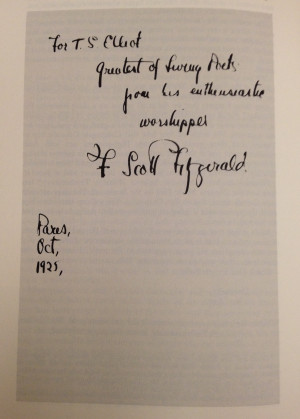 For T. S Elliot
Greatest of Living Poets
from his enthuseastic
worshipper
F Scott Fitzgerald.
Paris,
Oct,
1925,